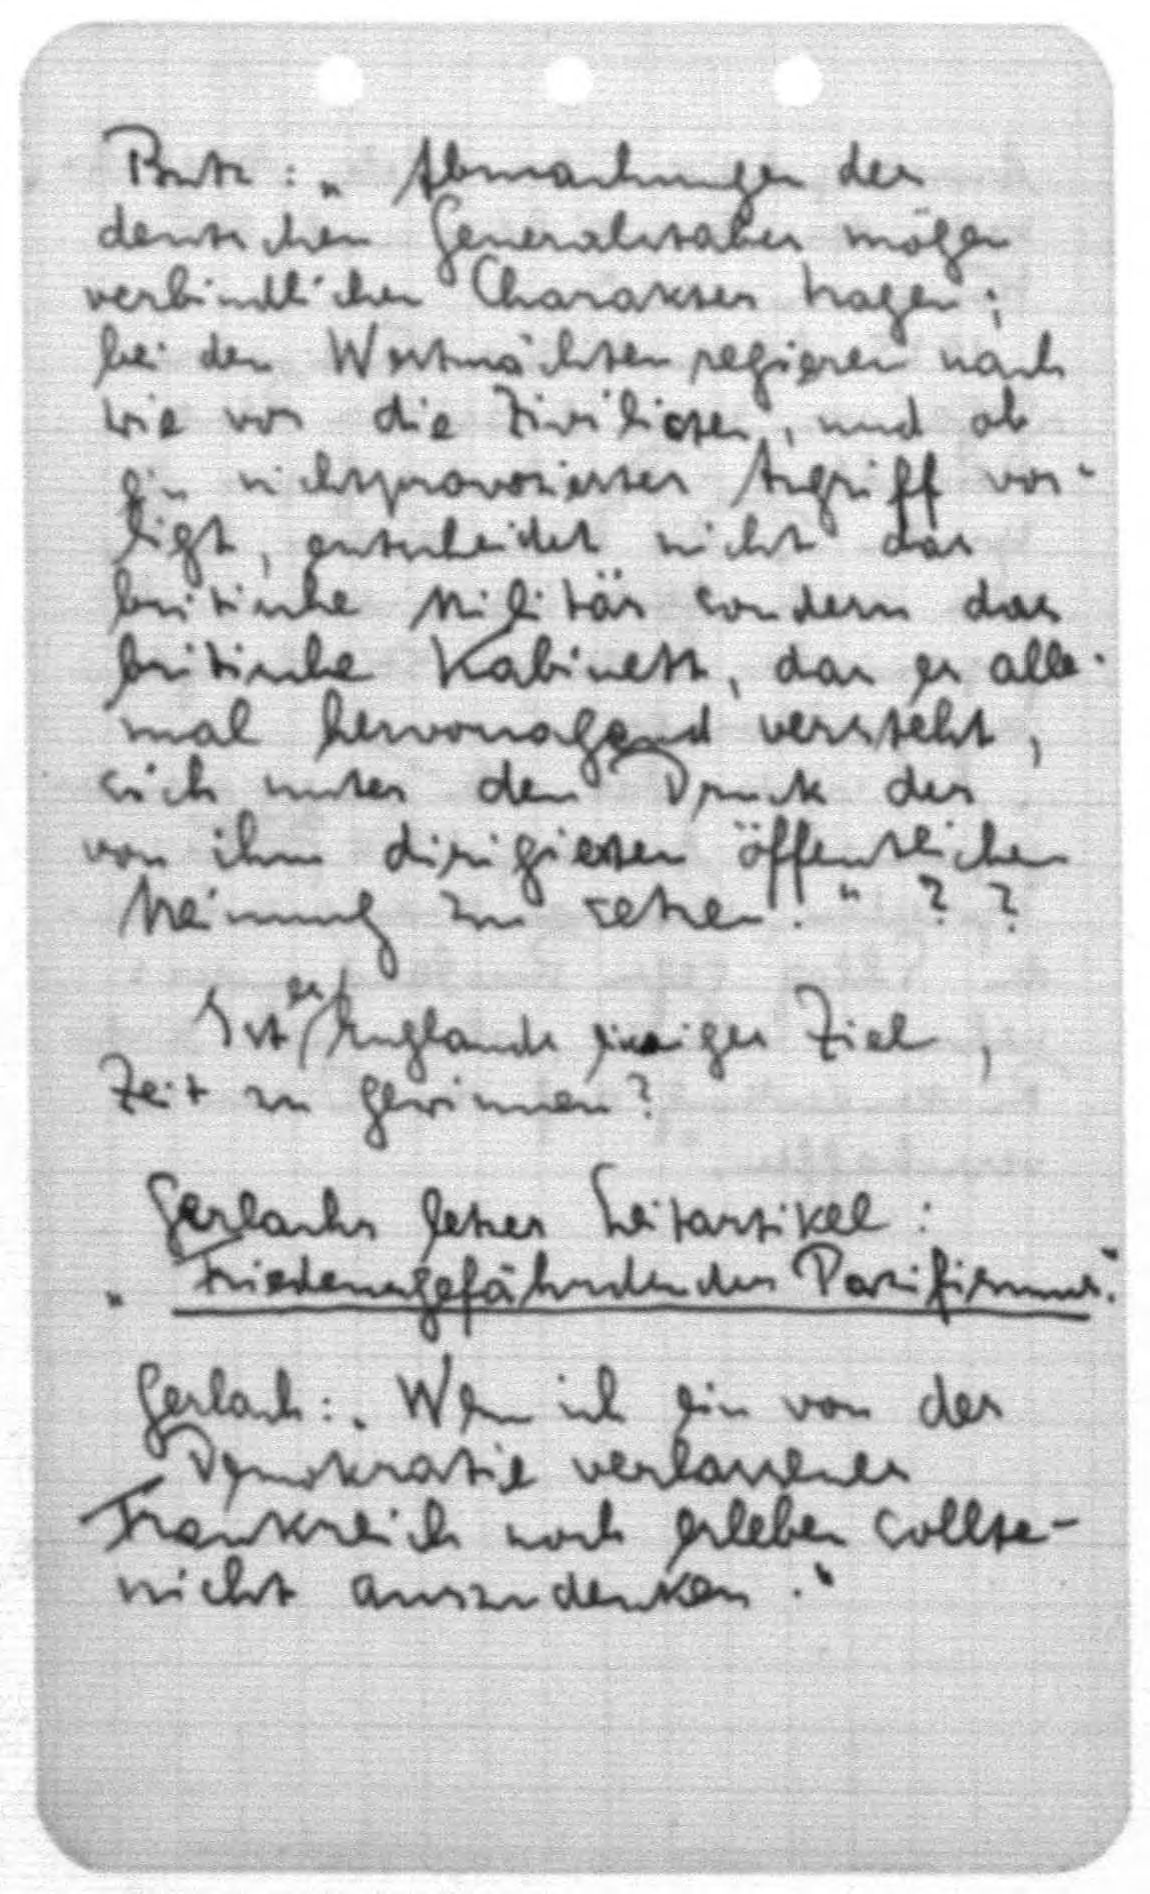 „Abmachungen des
deutschen Generalstabes mögen
verbindlichen Charakter tragen;
bei den Westmächten regieren nach
wie vor die Zivilisten, und ob
ein nichtprovozierter Angriff vor-
ligt, entscheidet nicht das
britische Militär sondern das
britische Kabinett, das es alle-
mal hervorragend versteht,
sich unter den Druck der
von ihm dirigierten öffentlichen
Meinung zu setzen." ? ?
Ist es Englands einziges Ziel,
Zeit zu gewinnen?
Gerlachs letzter Leitartikel:
„Friedensgefährdender Pazifismus."
Gerlach: „Wenn ich ein von der
Demokratie verlassenes
Frankreich noch erleben sollte-
nicht auszudenken."